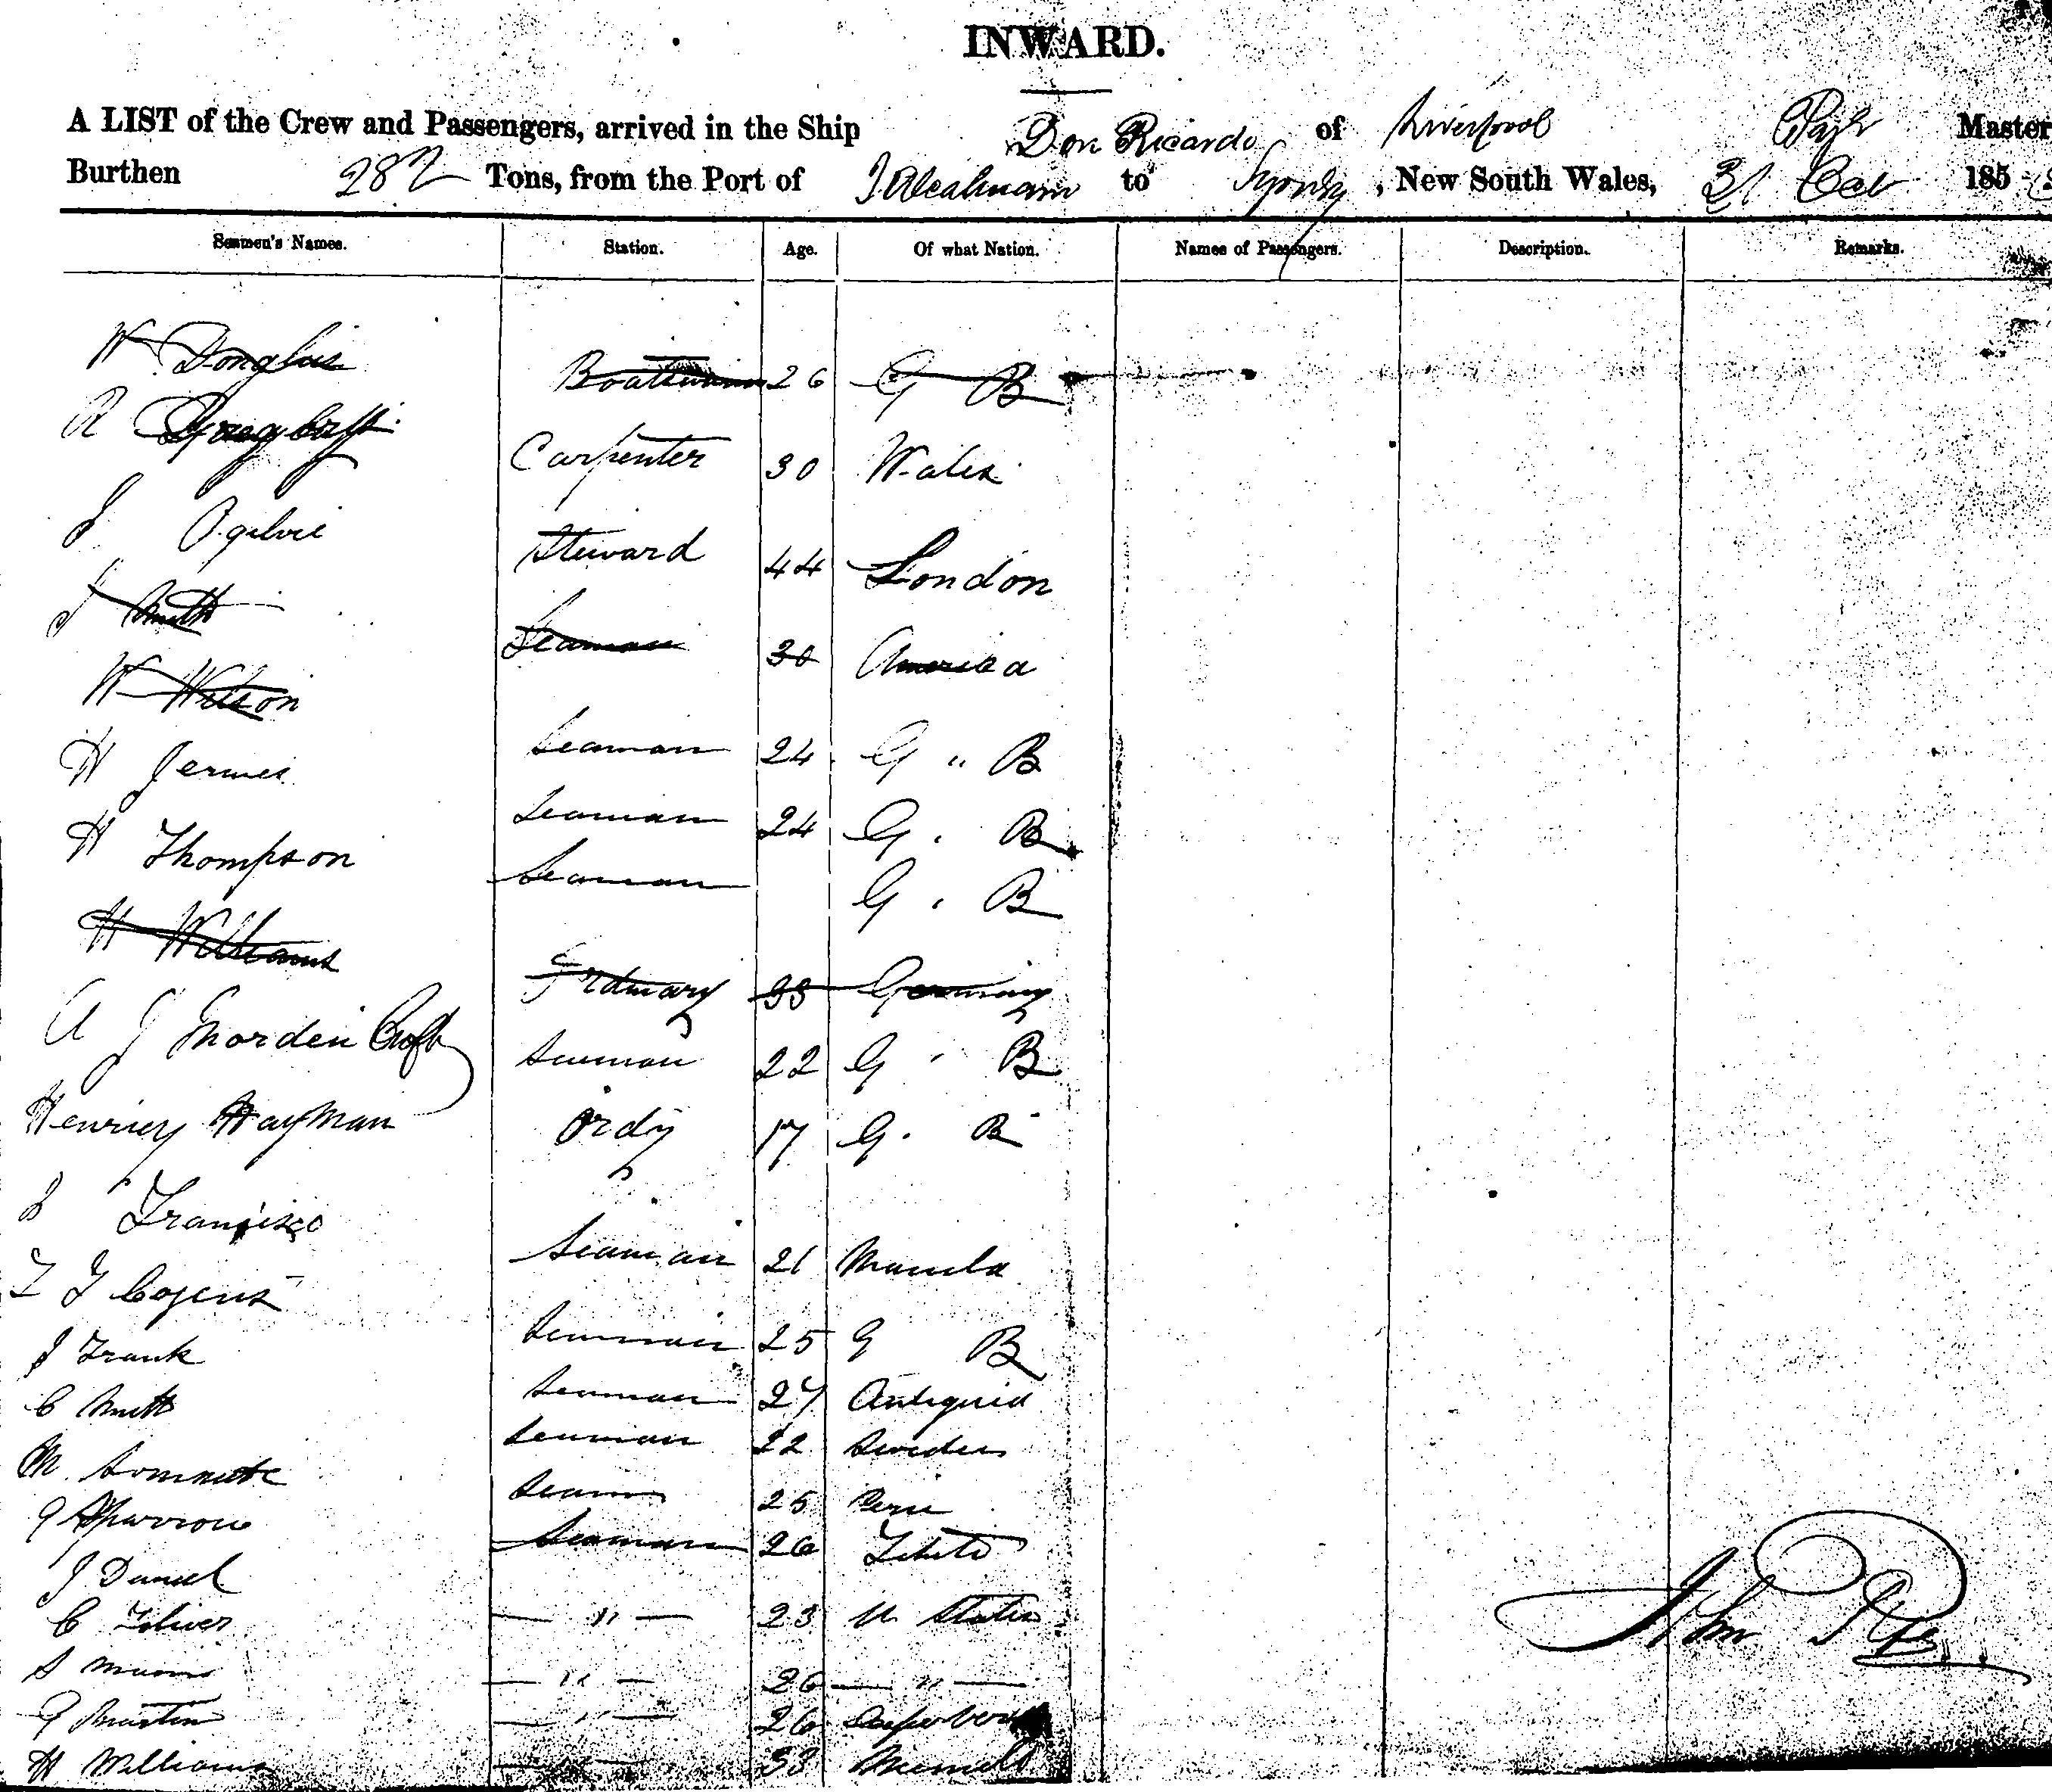 INWARD.
A LIST of the Crew and Passengers, arrived in the Ship Don Ricardo of Liverpool Master
Burthen 282 Tons, from the Port of to Sydney, New South Wales, 31 185
Seamen's Names. Station. Age. Of what Nation. Names of Passengers. Description. Remarks.
W Douglas Boatswain 26 G B
R Carpenter 30 Wales
J Ogilvie Steward 44 London
J Smith Seaman 30 America
W Wilson Seaman 24 G " B
H Jermes Seaman 24 G . B
H Thompson Seaman G . B
H Williams Ordinary 33 Germany
A J Croft Seaman 22 G " B
Henriey Hayman Ordy 17 G. B
J Francisco Seaman 21 Manila
Cozens Seaman 25 G B
J Frank Seaman 27 Antiguia
C Smith Seaman 22 Sweden
M. Seaman 25 Peru
G Sparrow Seaman 26
J Daniel — " — 23 U States
C — " — 26 — " —
S — " — 26
G Martin — " — 33
H Williams
John